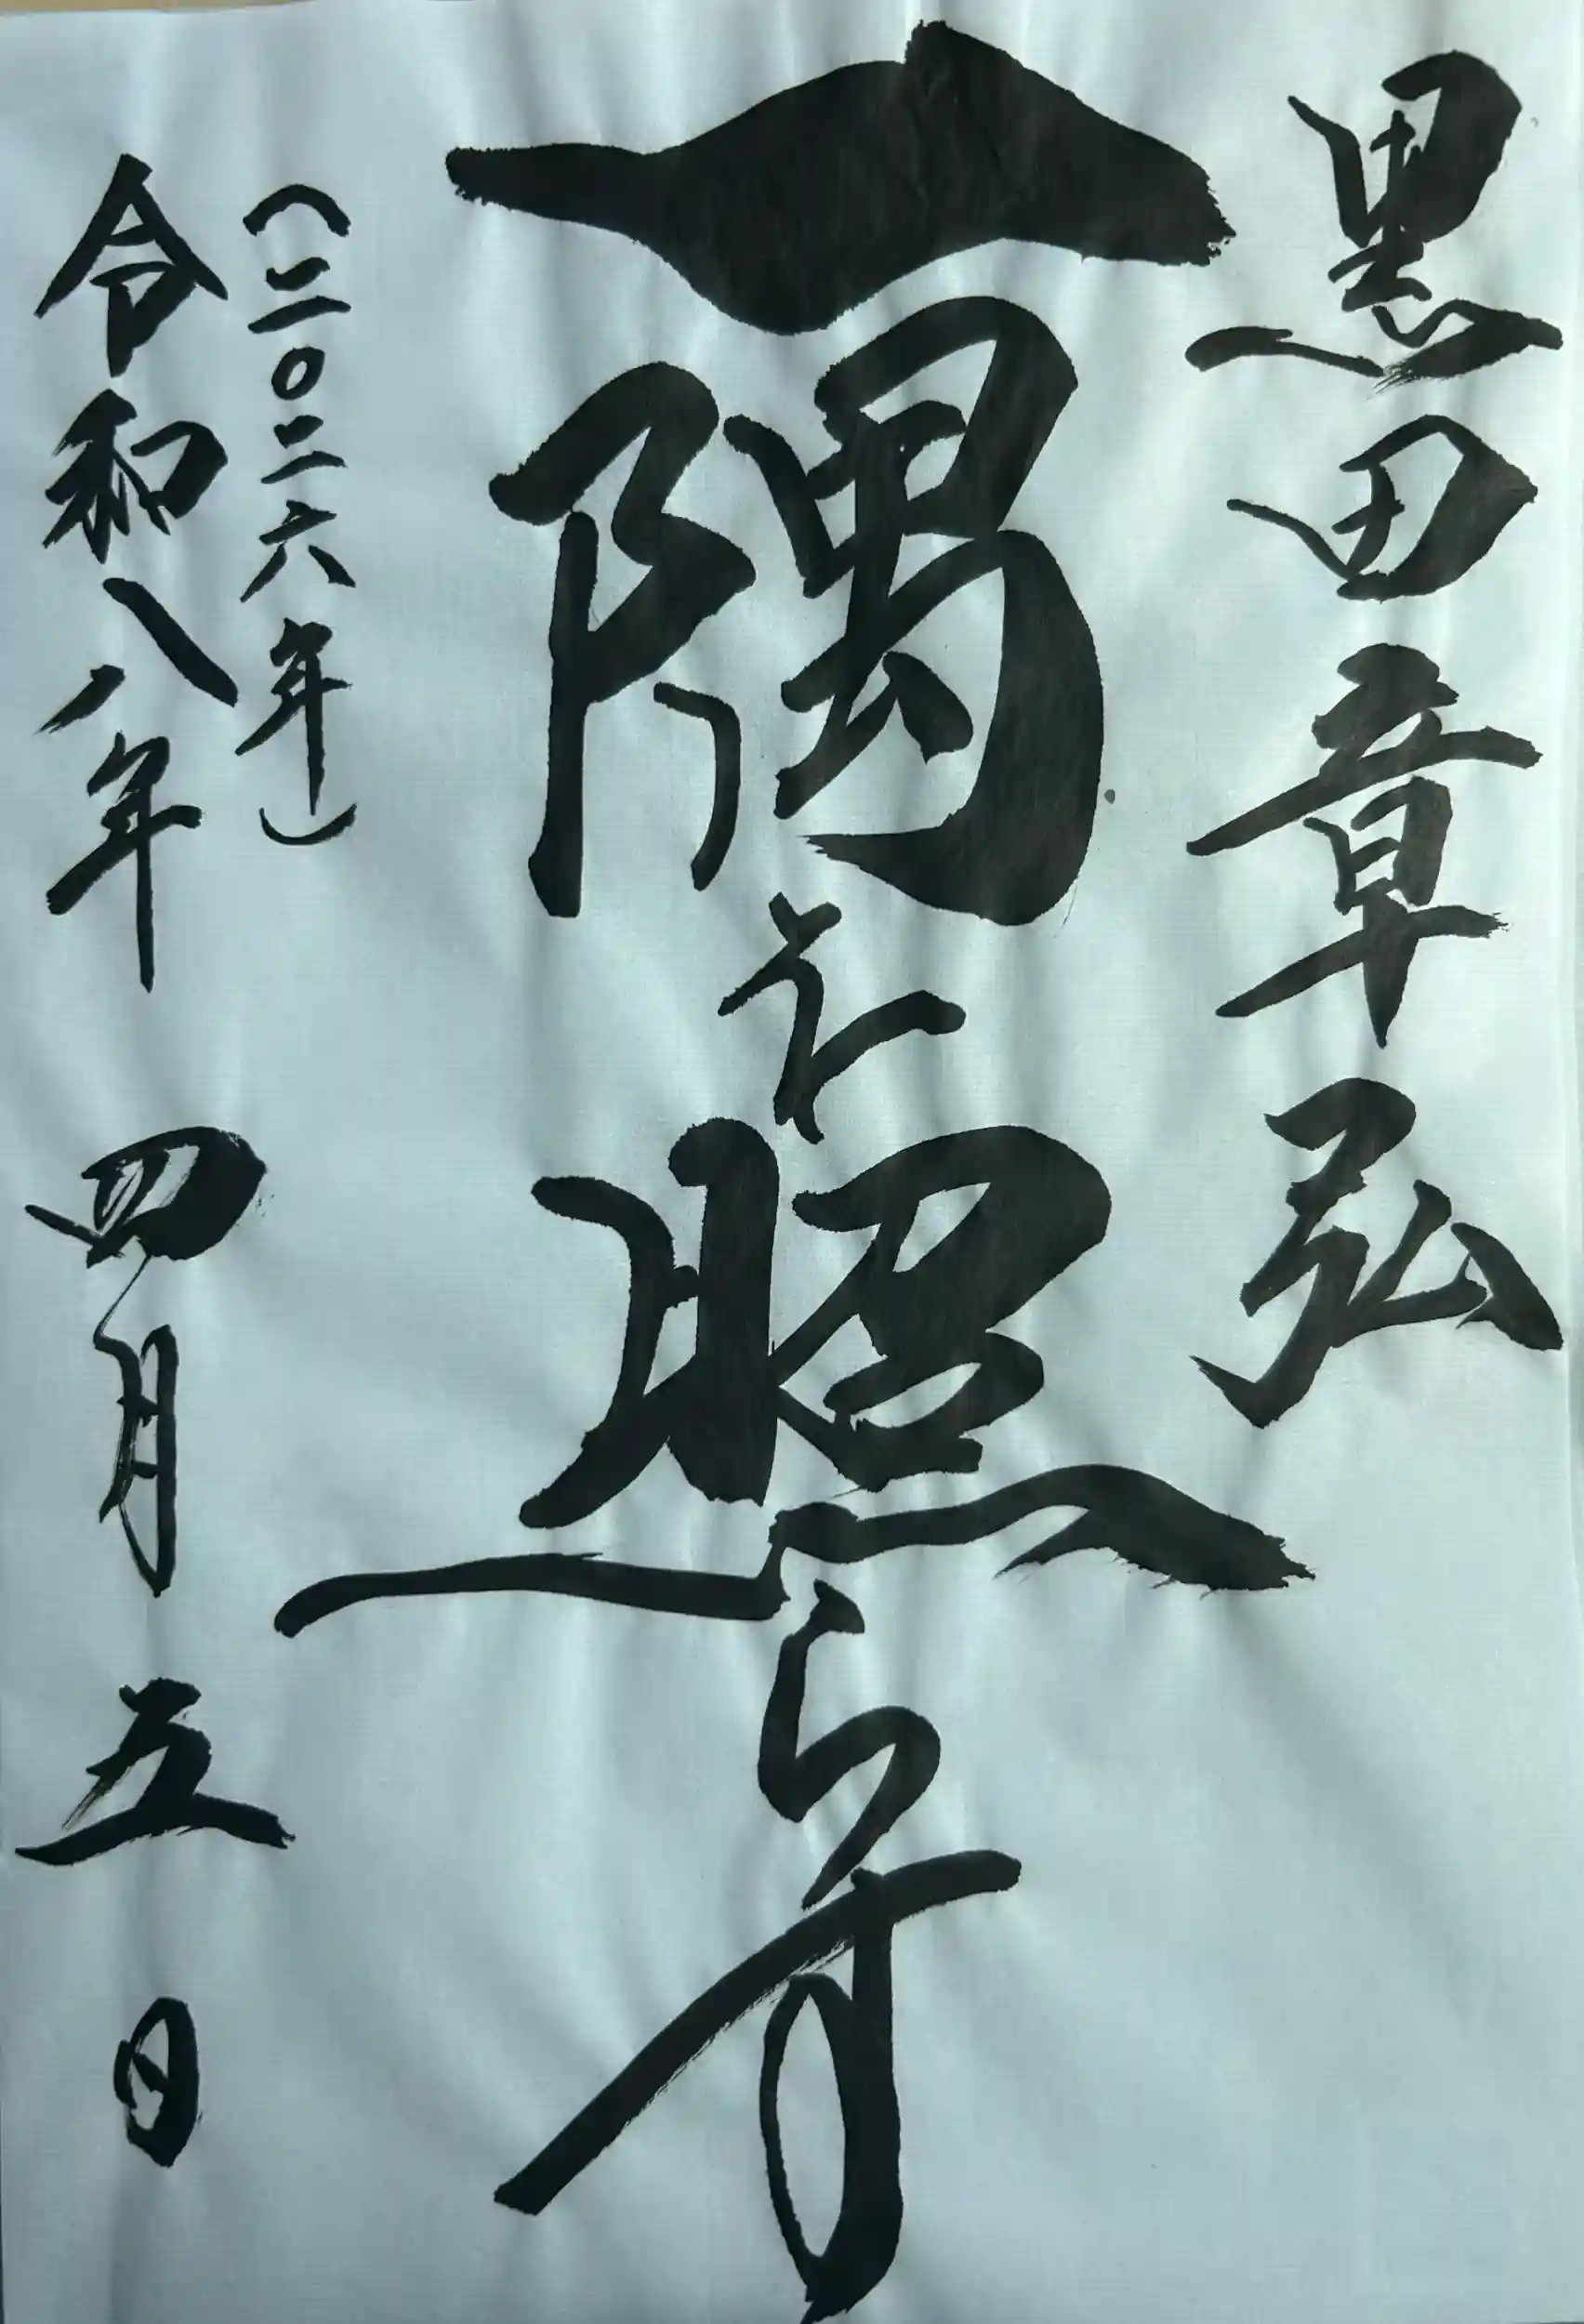 黒田章弘
一隅を照らす
(二〇二六年)
令和八年 四月 五日